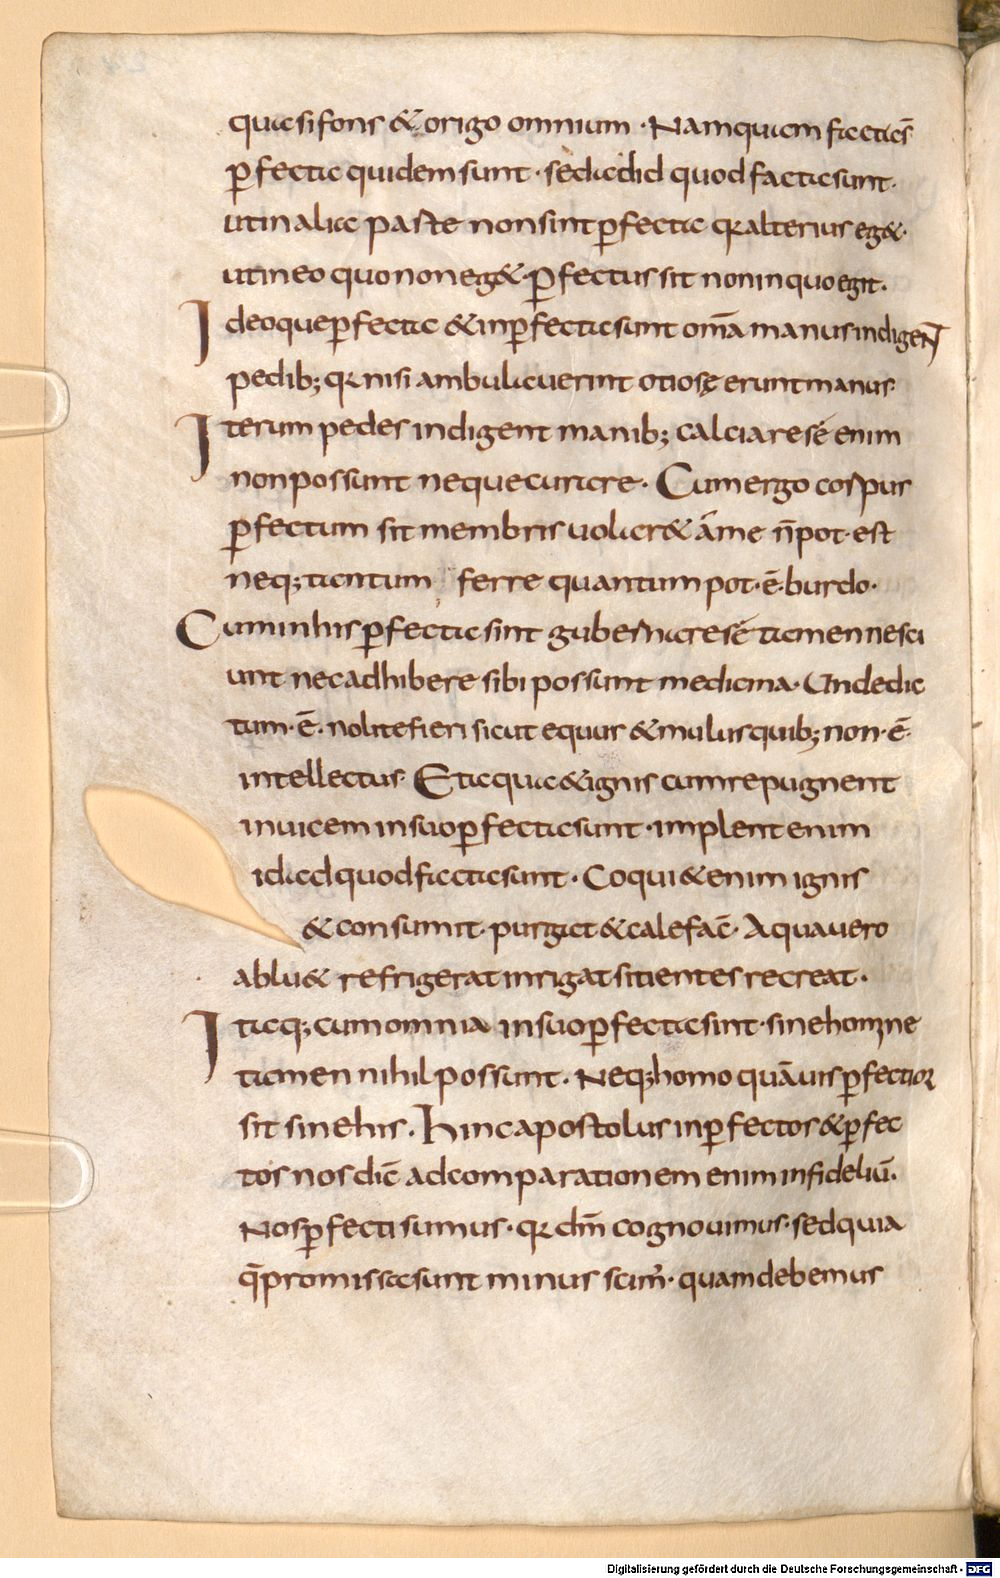 quasi fons & origo omnium · Namquam factaē
p̄fecta quidem sunt · sed adid quod facta sunt ·
ut in alia parte non sint p̄fecta qr alterius eg& ·
ut in eo quo non eg& p̄fectus sit non in quo egit ·
Ideoque p̄fecta & inp̄fecta sunt om̄a manus indigeN̄
pedib; qr nisi ambulauerint otiosę erunt manus ·
Iterum pedes indigent manib; calciare se enim
non possunt neque curare · Cum ergo corpus
p̄fectum sit membris uolar& āme n̄ pot · est
neq; tantum ferre quantum pot · ē · burdo ·
Cum in his p̄fecta sint gubernare se tamen nesci
unt nec adhibere sibi possunt medicina · Unde dic
tum · ē · nolite fieri sicut equus & mulus quib; non · ē ·
intellectus · Et aqua & ignis cum repugnent
inuicem in suo p̄fecta sunt · implent enim
id ad quod facta sunt · Coqui & enim ignis
& consumit · purgat & calefac̄ · Aqua uero
ablu& refrigerat inrigat sitientes recreat ·
Itaq; cum omnia in suo p̄fecta sint · sine homine
tamen nihil possunt · Neq; homo quāuis p̄fectior
sit sine his · Hinc apostolus inp̄fectos & p̄fec
tos nos dic̄ ad comparationem enim infideliū ·
Nos p̄fecti sumus · qr dm̄ cognouimus · sed quia
q̄ promissa sunt minus scim' · quam debemus
Digitalisierung gefördert durch die Deutsche Forschungsgemeinschaft - DFG